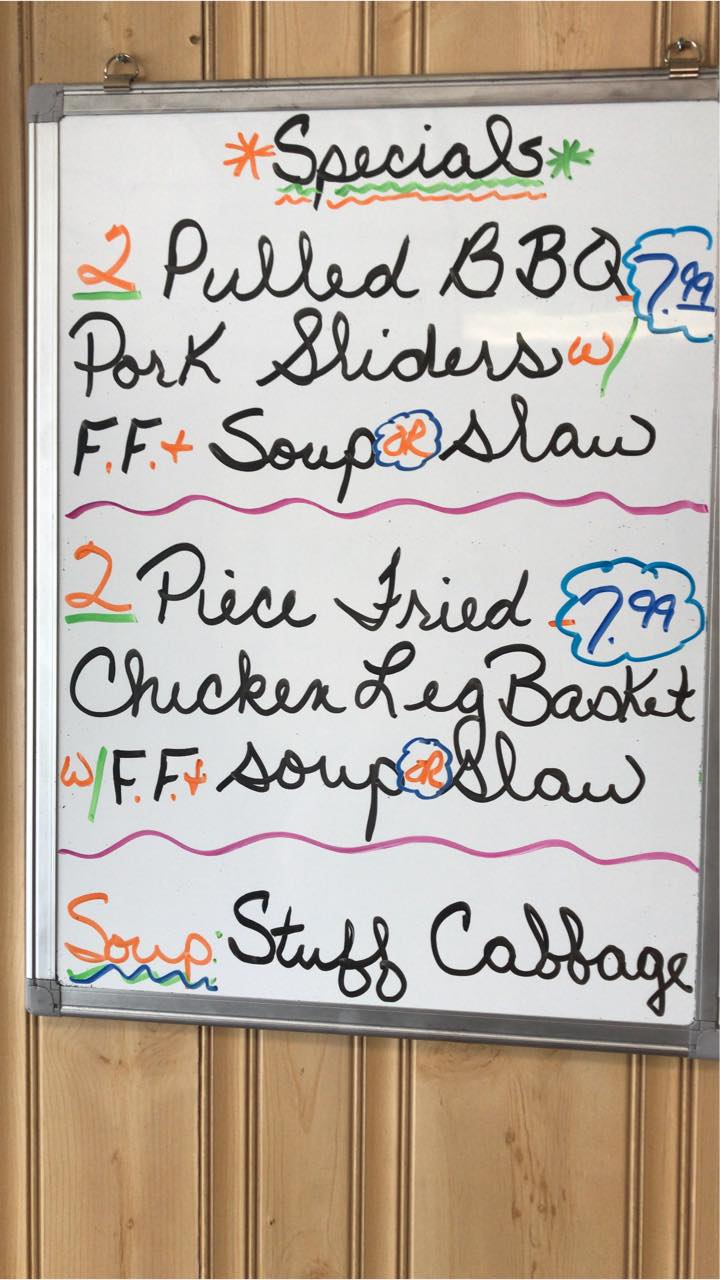 *Specials*
2 Pulled BBQ - 7.99
Pork Sliders w/
F.F. + Soup OR Slaw
2 Piece Fried - 7.99
Chicken Leg Basket
w/ F.F. + Soup OR Slaw
Soup: Stuff Cabbage